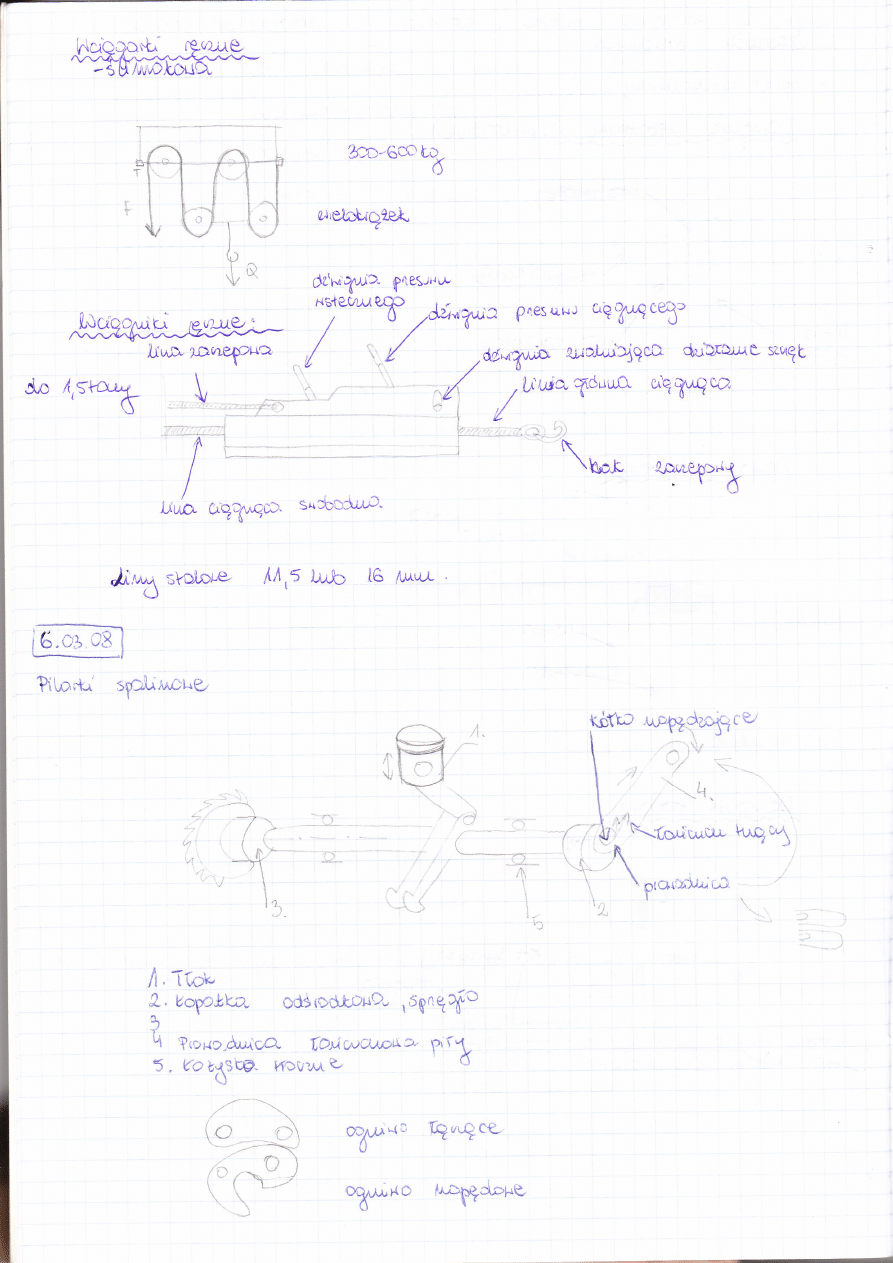 Wciągarki ręczne
- sznurkowa
300-600 kg
T
F
wielokrążek
Q
dźwignia przesuwu
wstecznego
dźwignia przesuwu ciągnącego
Wciągniki ręczne:
lina zaczepowa
dźwignia zwalniająca działanie szczęk
do 1,5 tony
linia główna ciągnąca
hak zaczepowy
lina ciągnąca swobodna.
Liny stalowe 11,5 lub 16 mm.
6.03.08
Pilarki spalinowe
kółko napędzające
1.
4.
łańcuch tnący
prowadnica
3.
5
2
1. Tłok
2. Łopatka odśrodkowa, sprzęgło
3
4 Prowadnica łańcuchowa piły
5. Łożysko
ogniwo łączące
ogniwo napędowe